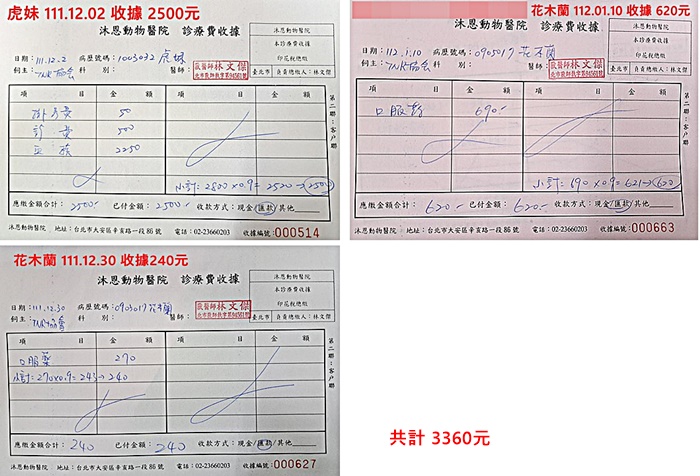 虎妹 111.12.02 收據 2500元
沐恩動物醫院 診療費收據
沐恩動物醫院
本診療費收據
印花稅總繳
臺北市 負責總繳人：林文傑
日期：111.12.2 病歷號碼：1003032 虎妹
飼主：TNR協會 科別： 醫師：獸醫師林文傑
項目 金額 項目 金額
掛號費 50
診費 500
血檢 2250
小計：2800×0.9=2520→2500
應繳金額合計：2500.- 已付金額：2500.- 收款方式：現金/匯款/其他
沐恩動物醫院 地址：台北市大安區辛亥路一段86號 電話：02-23660203 收據編號：000514
第二聯：客戶聯
花木蘭 112.01.10 收據 620元
沐恩動物醫院 診療費收據
沐恩動物醫院
本診療費收據
印花稅總繳
臺北市 負責總繳人：林文傑
日期：112.1.10 病歷號碼：0905019 花木蘭
飼主：TNR協會 科別： 醫師：獸醫師林文傑
項目 金額 項目 金額
口服藥 690.-
小計：690×0.9=621→620
應繳金額合計：620.- 已付金額：620.- 收款方式：現金/匯款/其他
沐恩動物醫院 地址：台北市大安區辛亥路一段86號 電話：02-23660203 收據編號：000663
第二聯：客戶聯
花木蘭 111.12.30 收據240元
沐恩動物醫院 診療費收據
沐恩動物醫院
本診療費收據
印花稅總繳
臺北市 負責總繳人：林文傑
日期：111.12.30 病歷號碼：0905019 花木蘭
飼主：TNR協會 科別： 醫師：獸醫師林文傑
項目 金額 項目 金額
口服藥 270
小計：270×0.9=243→240
應繳金額合計：240 已付金額：240 收款方式：現金/匯款/其他
沐恩動物醫院 地址：台北市大安區辛亥路一段86號 電話：02-23660203 收據編號：000627
第二聯：客戶聯
共計 3360元